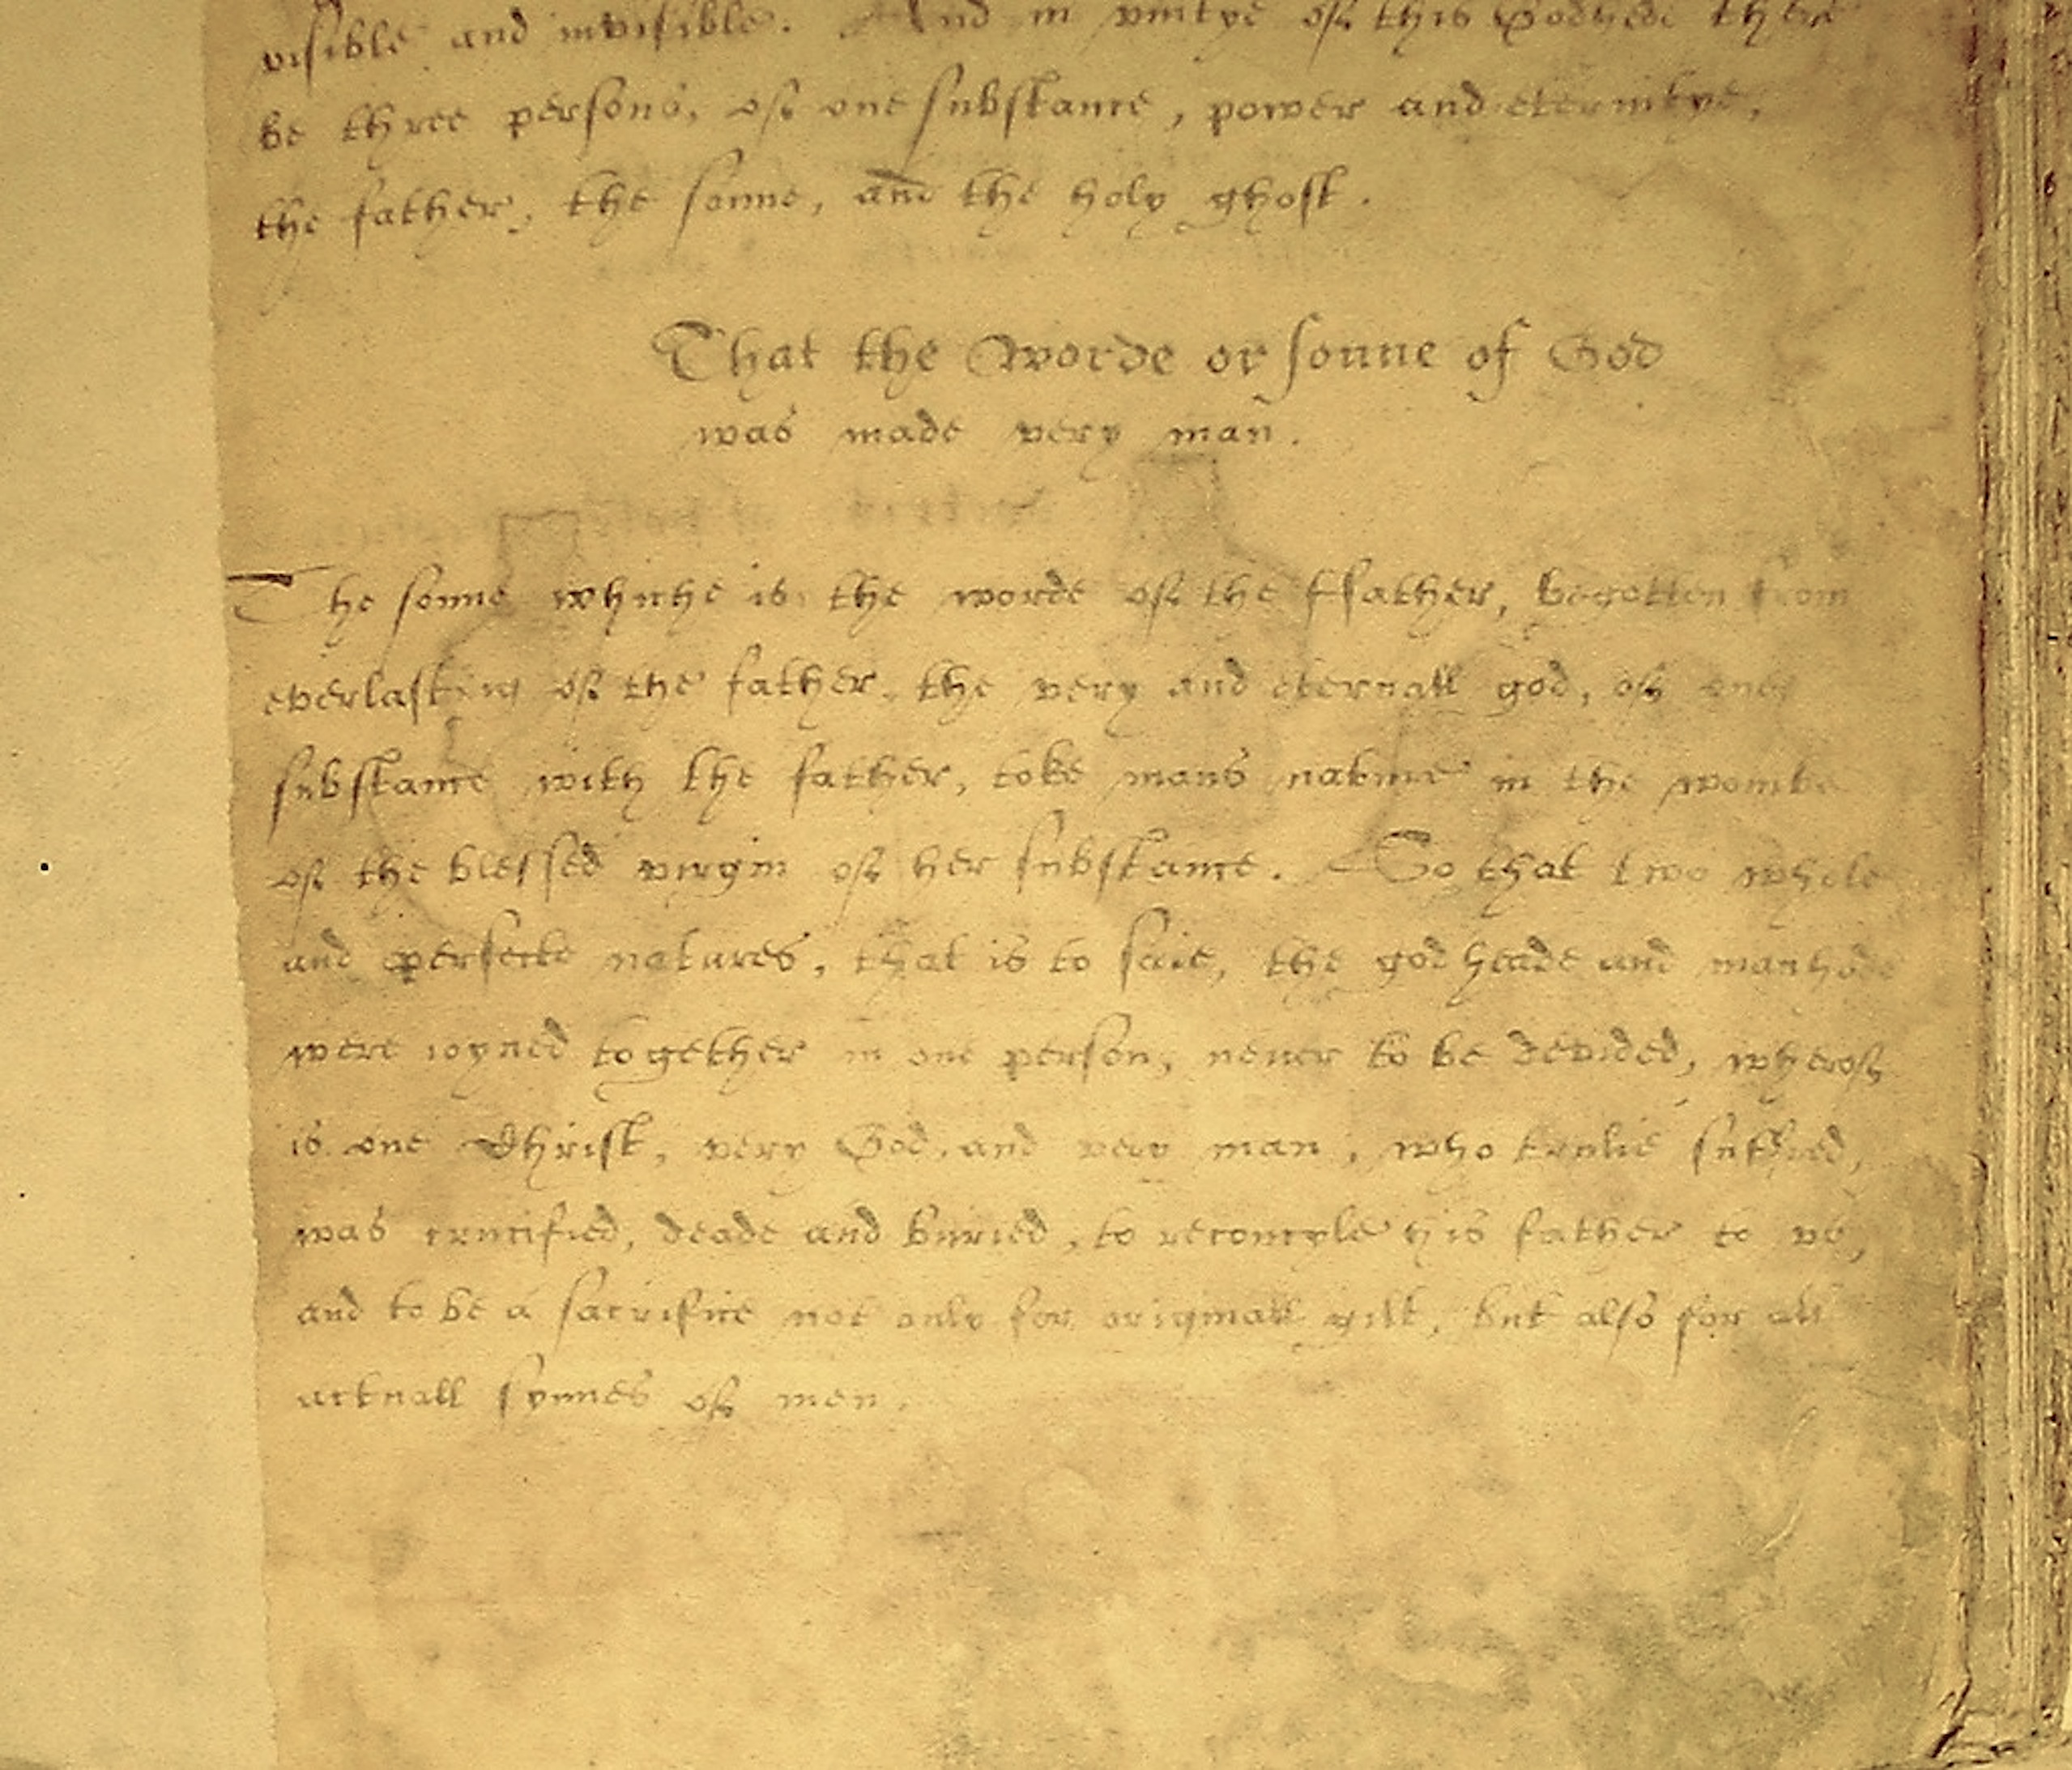 visible and invisible. And in vnitye of this Godhede there
be three persons, of one substance, power and eternitye,
the father, the sonne, and the holy ghost.
That the Worde or sonne of God
was made very man.
The sonne whiche is the worde of the ffather, begotten from
everlasting of the father, the very and eternall god, of one
substance with the father, toke mans nature in the wombe
of the blessed virgin of her substance. So that two whole
and perfecte natures, that is to saie, the godheade and manhode
were ioyned together in one person, neuer to be devided, wherof
is one Christ, very God, and very man, who trulie suffred,
was crucified, deade and buried, to reconcyle his father to vs,
and to be a sacrifice not only for originall gilt, but also for all
actuall synnes of men.